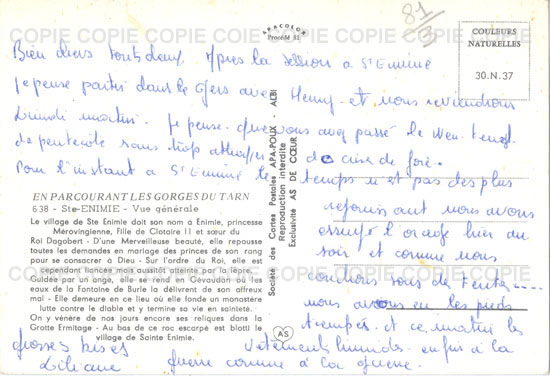 COPIE COPIE COPIE COPIE COPIE COPIE COPIE
APACOLOR
Procédé 81
81
3
COULEURS
NATURELLES
30.N.37
Bien chers tous deux. Après la session à Ste Enimie
je pense partir dans le Gers avec Henny et nous reviendrons
Lundi matin. je pense que vous avez passé le Wen
de pentecôte sans trop attraper de crise de foie.
Pour l'instant à Ste Enimie le temps n'est pas des plus
rejouissant nous avons
essuyé l'orage hier au
soir et comme nous
couchons sous de tentes ----
nous avons eu les pieds
trempés. et ce matin les
vetements humides. enfin à la
guerre comme à la guerre.
grosses bises
Liliane
EN PARCOURANT LES GORGES DU TARN
638 - Ste-ENIMIE - Vue générale
Le village de Ste Enimie doit son nom à Enimie, princesse
Mérovingienne, Fille de Clotaire II et sœur du
Roi Dagobert - D'une Merveilleuse beauté, elle repousse
toutes les demandes en mariage des princes de son rang
pour se consacrer à Dieu - Sur l'ordre du Roi, elle est
cependant fiancée mais aussitôt atteinte par la lèpre.
Guidée par un ange, elle se rend en Gévaudan où les
eaux de la Fontaine de Burle la délivrent de son affreux
mal - Elle demeure en ce lieu où elle fonde un monastère
lutte contre le diable et y termine sa vie en sainteté.
On y vénère de nos jours encore ses reliques dans la
Grotte Ermitage - Au bas de ce roc escarpé est blotti le
village de Sainte Enimie.
Société des Cartes Postales APA-POUX - ALBI
Reproduction interdite
Exclusivité AS DE CŒUR
AS